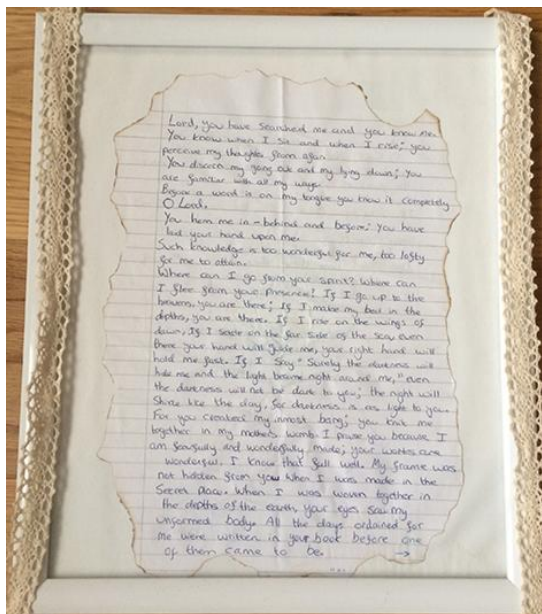 Lord, you have searched me and you know me.
You know when I sit and when I rise; you
perceive my thoughts from afar.
You discern my going out and my lying down; You
are familiar with all my ways.
Before a word is on my tongue you know it completely
O Lord.
You hem me in - behind and before; you have
laid your hand upon me.
Such knowledge is too wonderful for me, too lofty
for me to attain.
Where can I go from your spirit? Where can
I flee from your presence? If I go up to the
heavens, you are there; If I make my bed in the
depths, you are there. If I rise on the wings of
dawn, If I settle on the far side of the sea, even
there your hand will guide me, your right hand will
hold me fast. If I say "Surely the darkness will
hide me and the light become night around me," even
the darkness will not be dark to you; the night will
Shine like the day, for darkness is as light to you.
For you created my inmost being; you knit me
together in my mothers womb. I praise you because I
am fearfully and wonderfully made; your works are
wonderful. I know that full well. My frame was
not hidden from you when I was made in the
Secret place. When I was woven together in
the depths of the earth, your eyes saw my
unformed body. All the days ordained for
me were written in your book before one
of them came to be. →